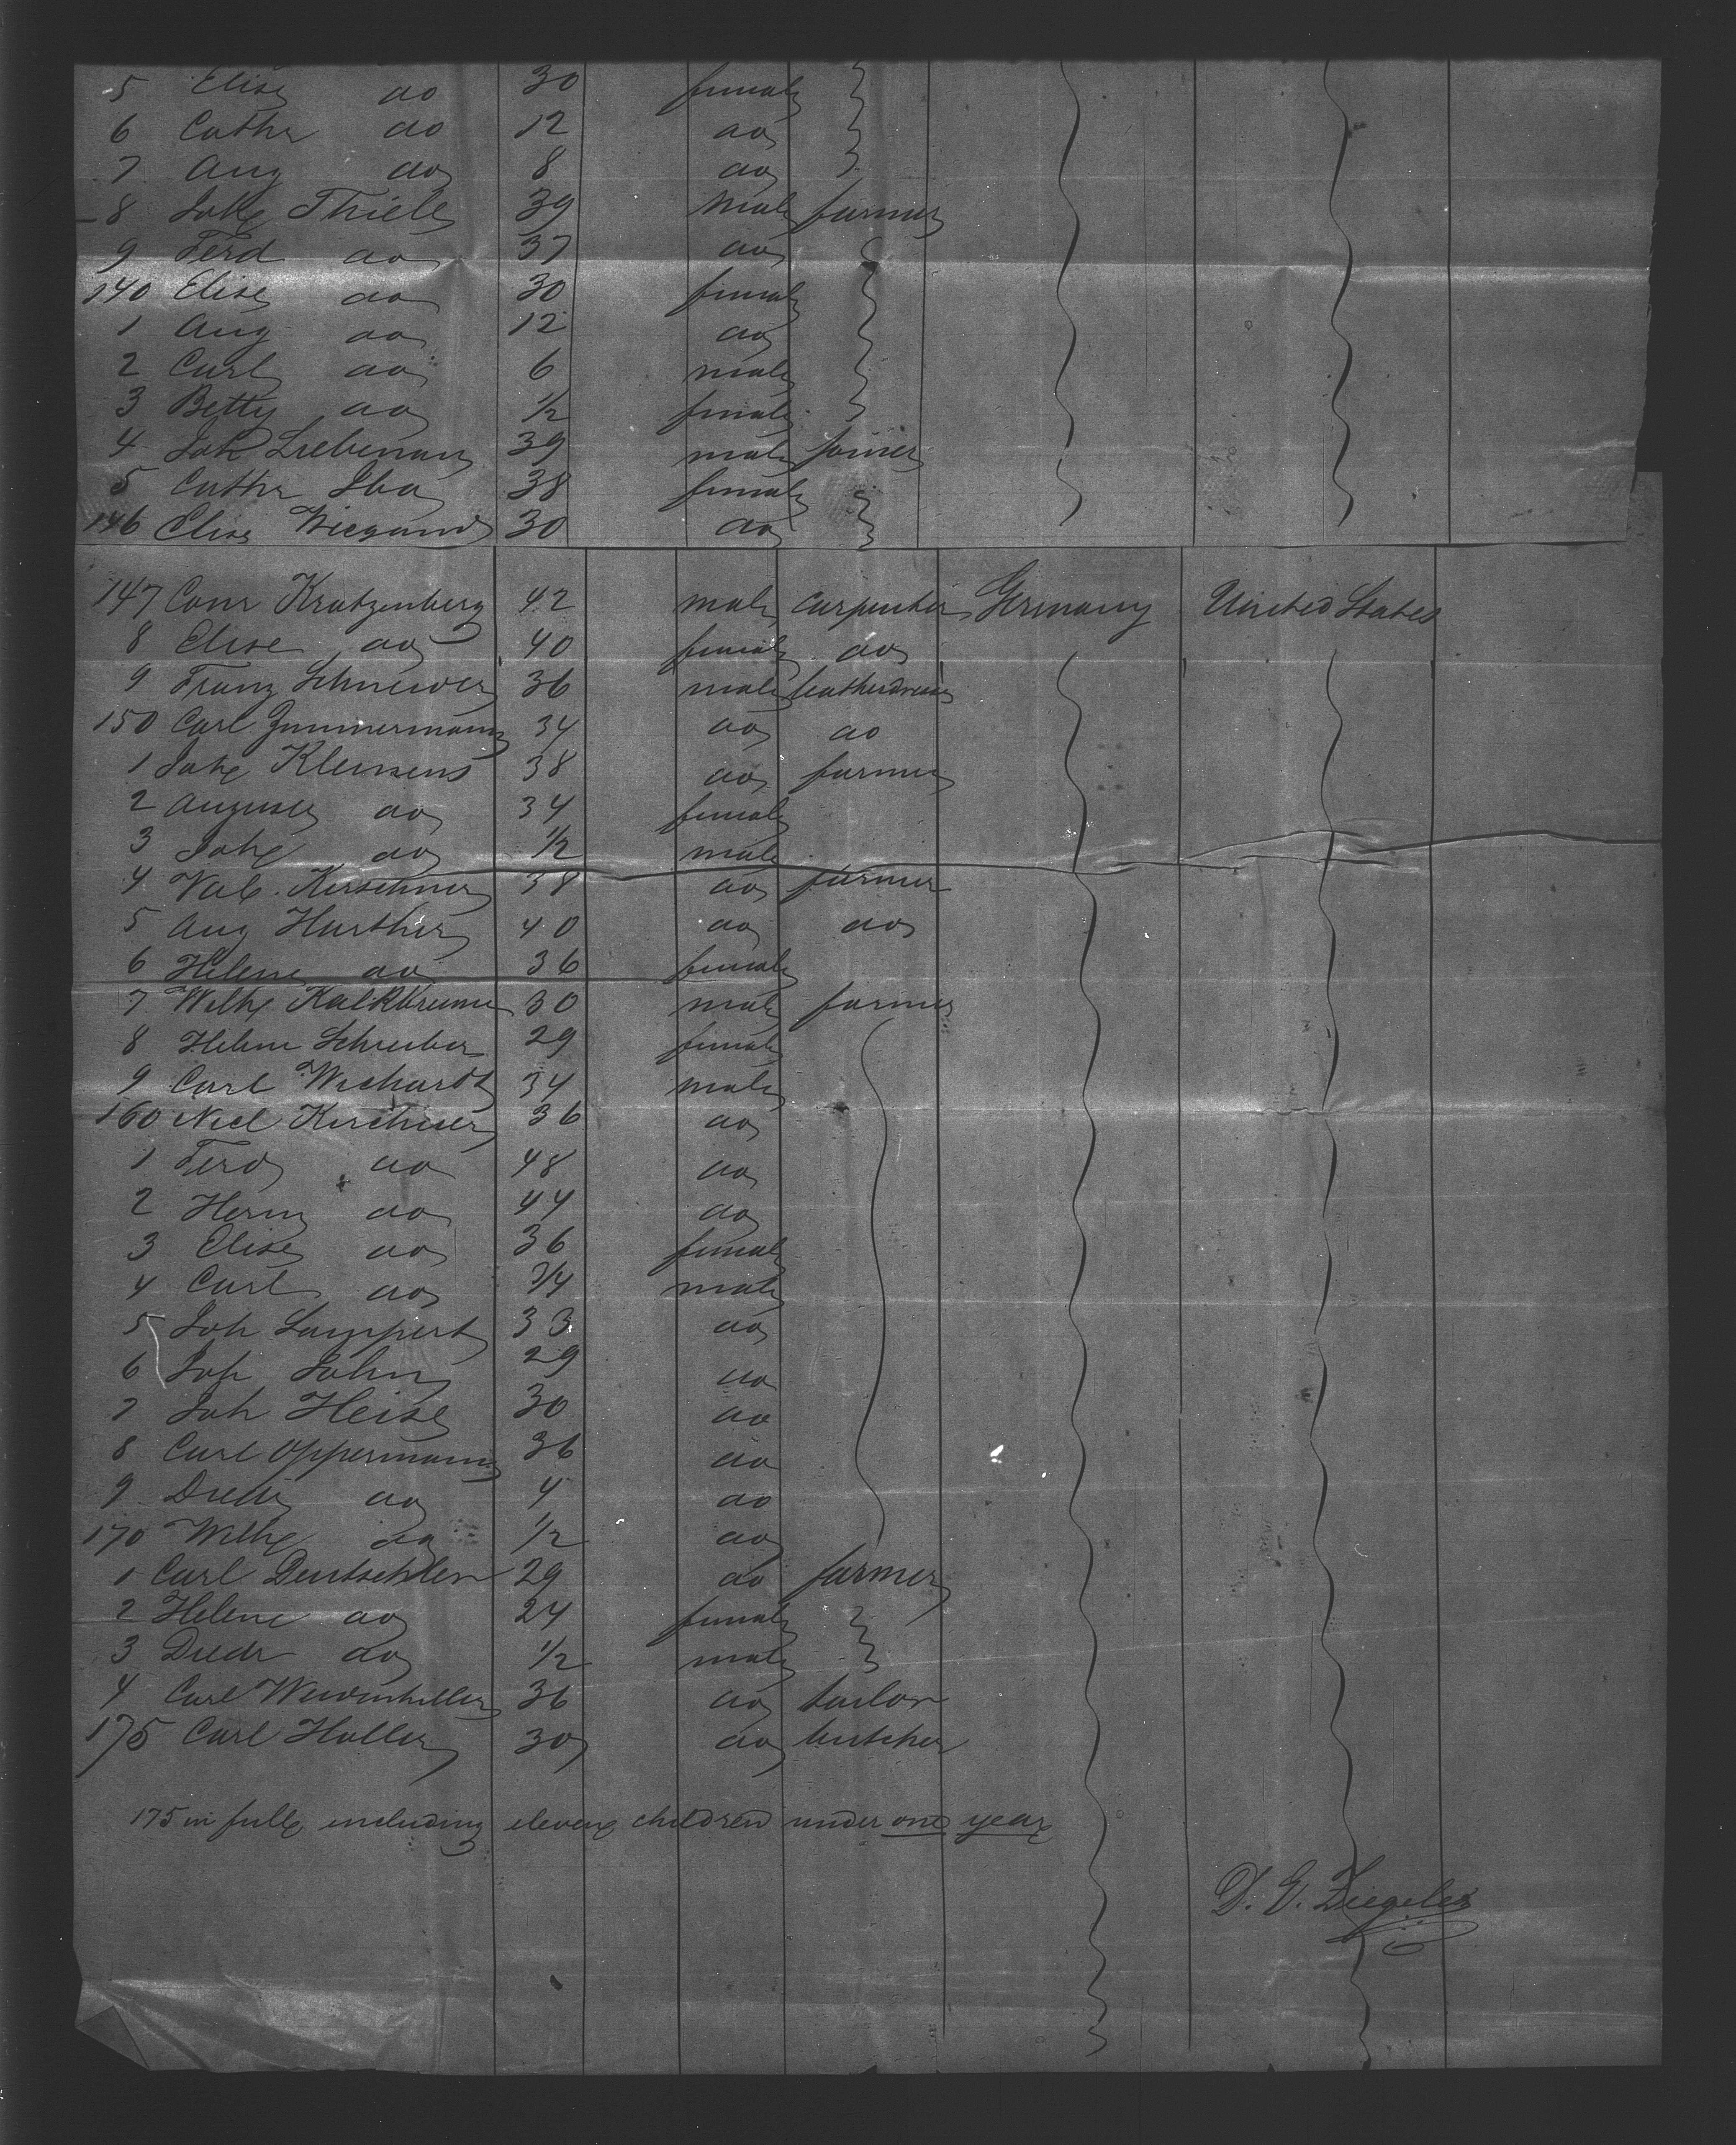 5 Elise do 30 female
6 Cathr do 12 do
7 Aug do 8 do
8 Johs Thiele 39 male farmer
9 Ferd do 37 do
140 Elise do 30 female
1 Aug do 12 do
2 Carl do 6 male
3 Betty do 1/2 female
4 Joh Liebeman 39 male joiner
5 Cathr Iba 38 female
146 Elise Wiegand 30 do
147 Conr Kratzenberg 42 male carpenter Germany United States
8 Elise do 40 female do
9 Franz Schneider 36 male leatherdresser
150 Carl Zimmermann 34 do do
1 Johs Klemens 38 do farmer
2 Auguste do 34 female
3 Johs do 1/2 male
4 Val. Kirschner 38 do farmer
5 Aug Harther 40 do do
6 Helene do 36 female
7 Wilh Kalkbrenner 30 male farmer
8 Helene Schreiber 29 female
9 Carl Wichardt 34 male
160 Kirchner 36 do
1 Ferd do 48 do
2 Herm do 44 do
3 Elise do 36 female
4 Carl do 3/4 male
5 Joh Lampert 33 do
6 Joh John 29 do
7 Joh Heise 30 do
8 Carl Oppermann 36 do
9 Diedr do 4 do
170 Wilh do 1/2 do
1 Carl Deutschler 29 do farmer
2 Helene do 24 female
3 Diedr do 1/2 male
4 Carl 36 do tailor
175 Carl Haller 30 do butcher
175 in full including eleven children under one year
D. E. Ziegeler